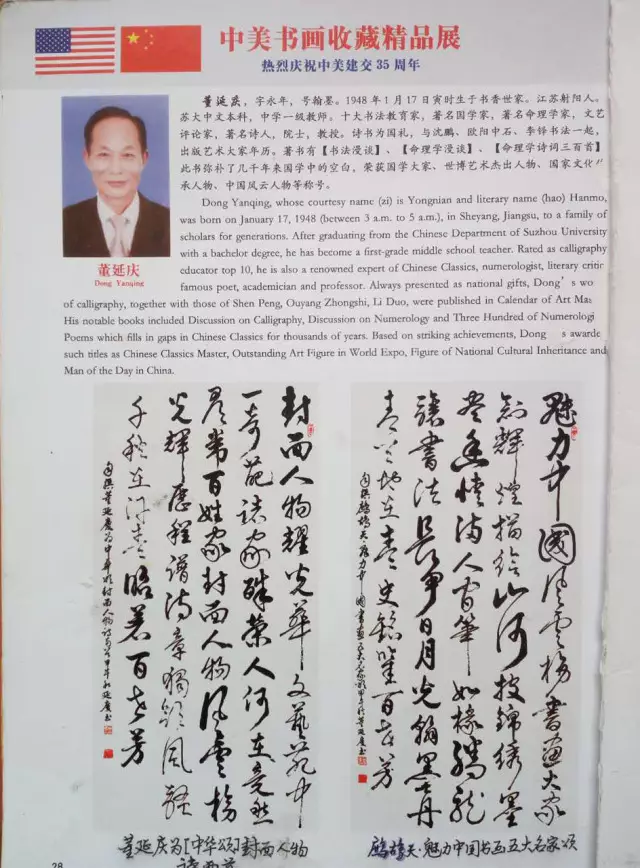 中美书画收藏精品展
热烈庆祝中美建交35周年
董延庆，字永年，号翰墨。1948年1月17日寅时生于书香世家。江苏射阳人。
苏大中文本科，中学一级教师。十大书法教育家，著名国学家，著名命理学家，文艺
评论家，著名诗人，院士，教授。诗书为国礼，与沈鹏、欧阳中石、李铎书法一起，
出版艺术大家年历。著书有【书法漫谈】、【命理学漫谈】、【命理学诗词三百首】
此书弥补了几千年来国学中的空白，荣获国学大家、世博艺术杰出人物、国家文化
承人物、中国风云人物等称号。
Dong Yanqing, whose courtesy name (zi) is Yongnian and literary name (hao) Hanmo,
was born on January 17, 1948 (between 3 a.m. to 5 a.m.), in Sheyang, Jiangsu, to a family of
scholars for generations. After graduating from the Chinese Department of Suzhou University
with a bachelor degree, he has become a first-grade middle school teacher. Rated as calligraphy
educator top 10, he is also a renowned expert of Chinese Classics, numerologist, literary critic
famous poet, academician and professor. Always presented as national gifts, Dong's wo
of calligraphy, together with those of Shen Peng, Ouyang Zhongshi, Li Duo, were published in Calendar of Art Mas
His notable books included Discussion on Calligraphy, Discussion on Numerology and Three Hundred of Numerologi
Poems which fills in gaps in Chinese Classics for thousands of years. Based on striking achievements, Dong 's awarde
such titles as Chinese Classics Master, Outstanding Art Figure in World Expo, Figure of National Cultural Inheritance and
Man of the Day in China.
董延庆
Dong Yanqing
魅力中國风雲榜書画大家
创輝煌描绘山河披锦绣墨
情满人间笔如椽腾龙
書法长争日月光翰墨丹
青地在青史铭百世芳
封面人物耀光華文藝苑中
一奇葩誌家殊荣人何在竟然
是寻常百姓家封面人物风雲榜
光輝歷程谱诗章獨领风骚
千秋在昭著百世芳
董延庆为[中华颂]封面人物
鹧鸪天·魅力中国书画五大名家颂
28